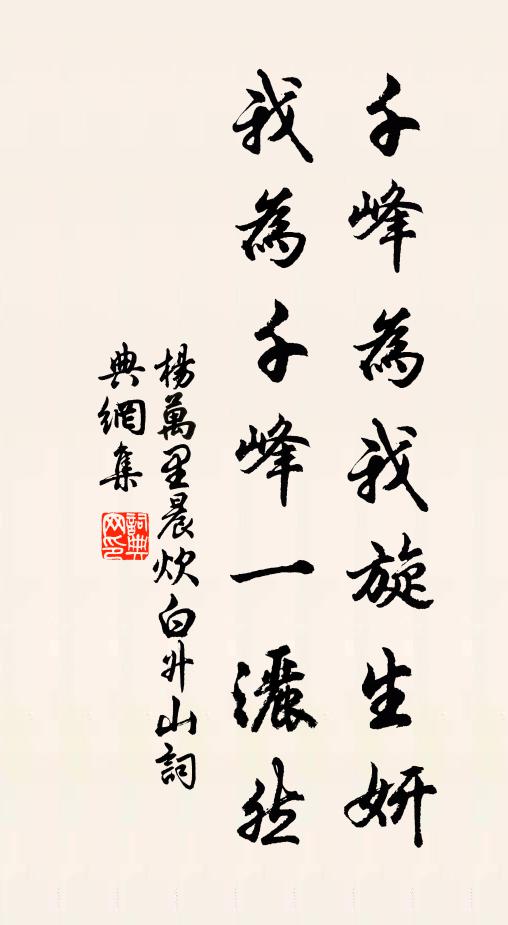 千峰為我旋生妍
我為千峰一灑然
楊萬里晨炊白升山詞
典網集
詞典網印